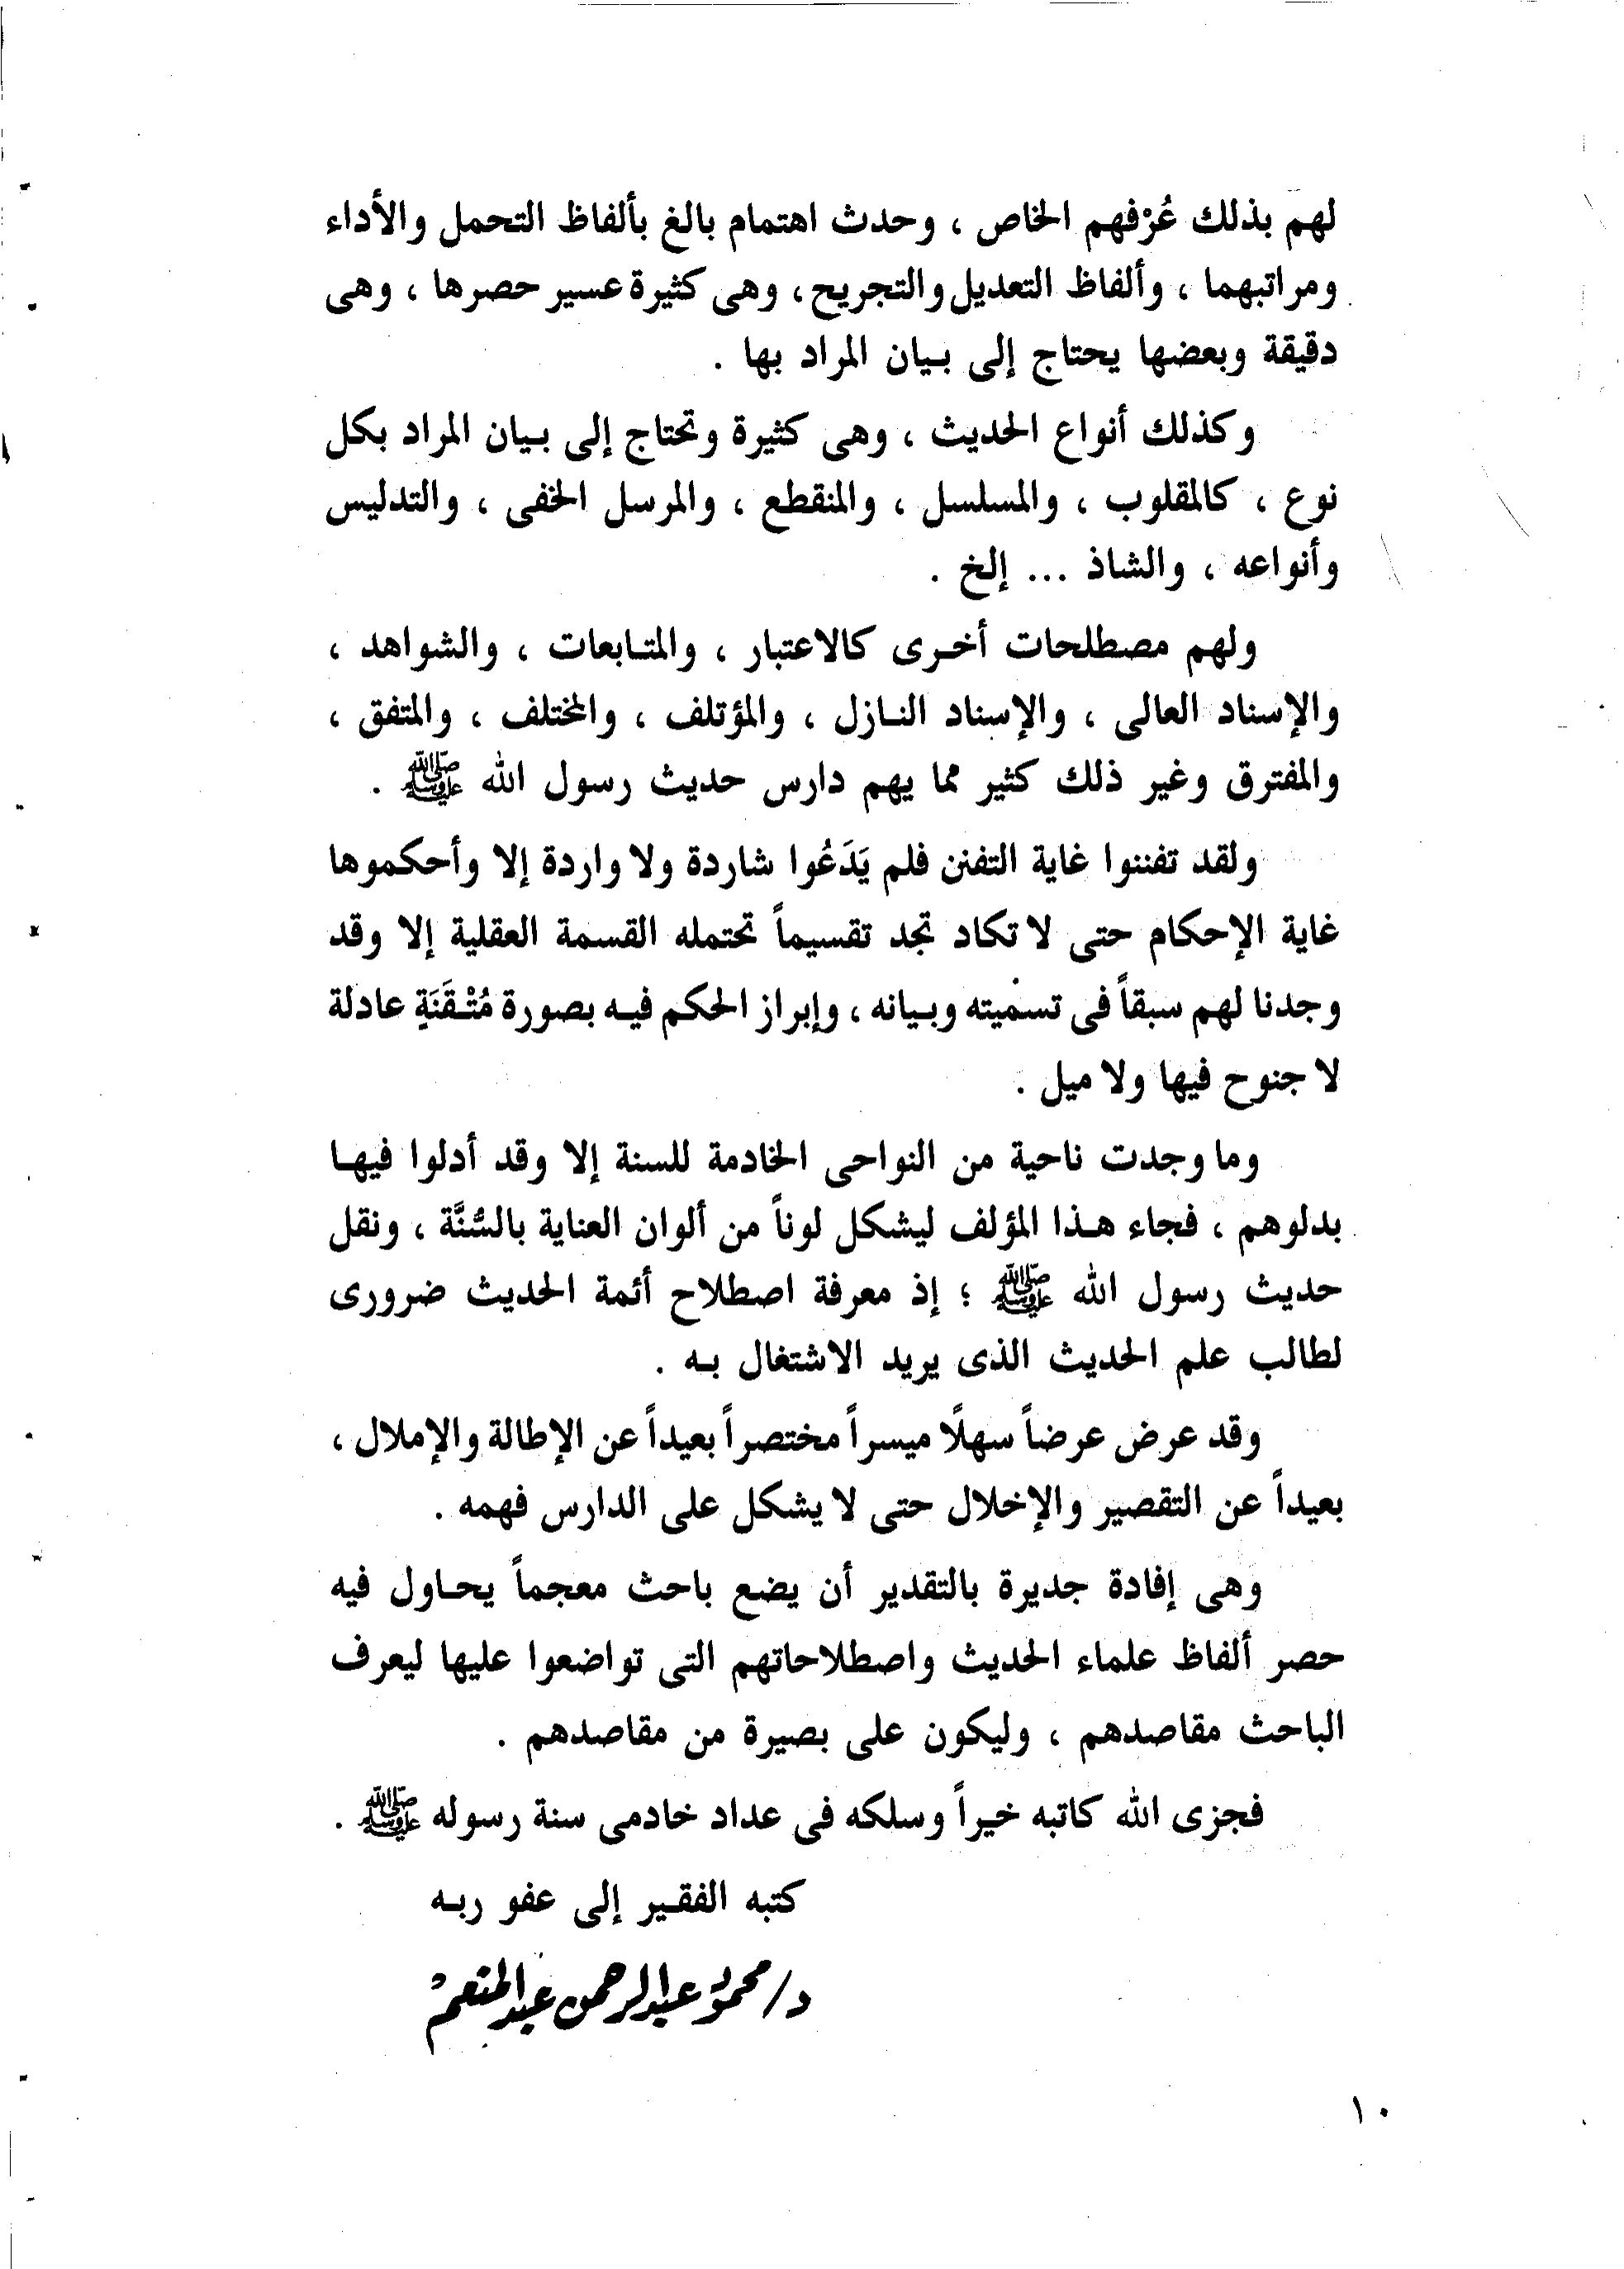 لهم بذلك عُرْفهم الخاص ، وحدث اهتمام بالغ بألفاظ التحمل والأداء
ومراتبهما ، وألفاظ التعديل والتجريح ، وهى كثيرة عسير حصرها ، وهى
دقيقة وبعضها يحتاج إلى بيان المراد بها .
وكذلك أنواع الحديث ، وهى كثيرة وتحتاج إلى بيان المراد بكل
نوع ، كالمقلوب ، والمسلسل ، والمنقطع ، والمرسل الخفى ، والتدليس
وأنواعه ، والشاذ ... إلخ .
ولهم مصطلحات أخرى كالاعتبار ، والمتابعات ، والشواهد ،
والإسناد العالى ، والإسناد النازل ، والمؤتلف ، والمختلف ، والمتفق ،
والمفترق وغير ذلك كثير مما يهم دارس حديث رسول الله ﷺ .
ولقد تفننوا غاية التفنن فلم يَدَعُوا شاردة ولا واردة إلا وأحكموها
غاية الإحكام حتى لا تكاد تجد تقسيماً تحتمله القسمة العقلية إلا وقد
وجدنا لهم سبقاً فى تسميته وبيانه ، وإبراز الحكم فيه بصورة مُتْقَنَةٍ عادلة
لا جنوح فيها ولا ميل .
وما وجدت ناحية من النواحى الخادمة للسنة إلا وقد أدلوا فيها
بدلوهم ، فجاء هذا المؤلف ليشكل لوناً من ألوان العناية بالسُّنَّة ، ونقل
حديث رسول الله ﷺ ؛ إذ معرفة اصطلاح أئمة الحديث ضرورى
لطالب علم الحديث الذى يريد الاشتغال به .
وقد عرض عرضاً سهلًا ميسراً مختصراً بعيداً عن الإطالة والإملال ،
بعيداً عن التقصير والإخلال حتى لا يشكل على الدارس فهمه .
وهى إفادة جديرة بالتقدير أن يضع باحث معجماً يحاول فيه
حصر ألفاظ علماء الحديث واصطلاحاتهم التى تواضعوا عليها ليعرف
الباحث مقاصدهم ، وليكون على بصيرة من مقاصدهم .
فجزى الله كاتبه خيراً وسلكه فى عداد خادمى سنة رسوله ﷺ .
كتبه الفقير إلى عفو ربه
د/ محمود عبد الرحمن عبد المنعم
١٠